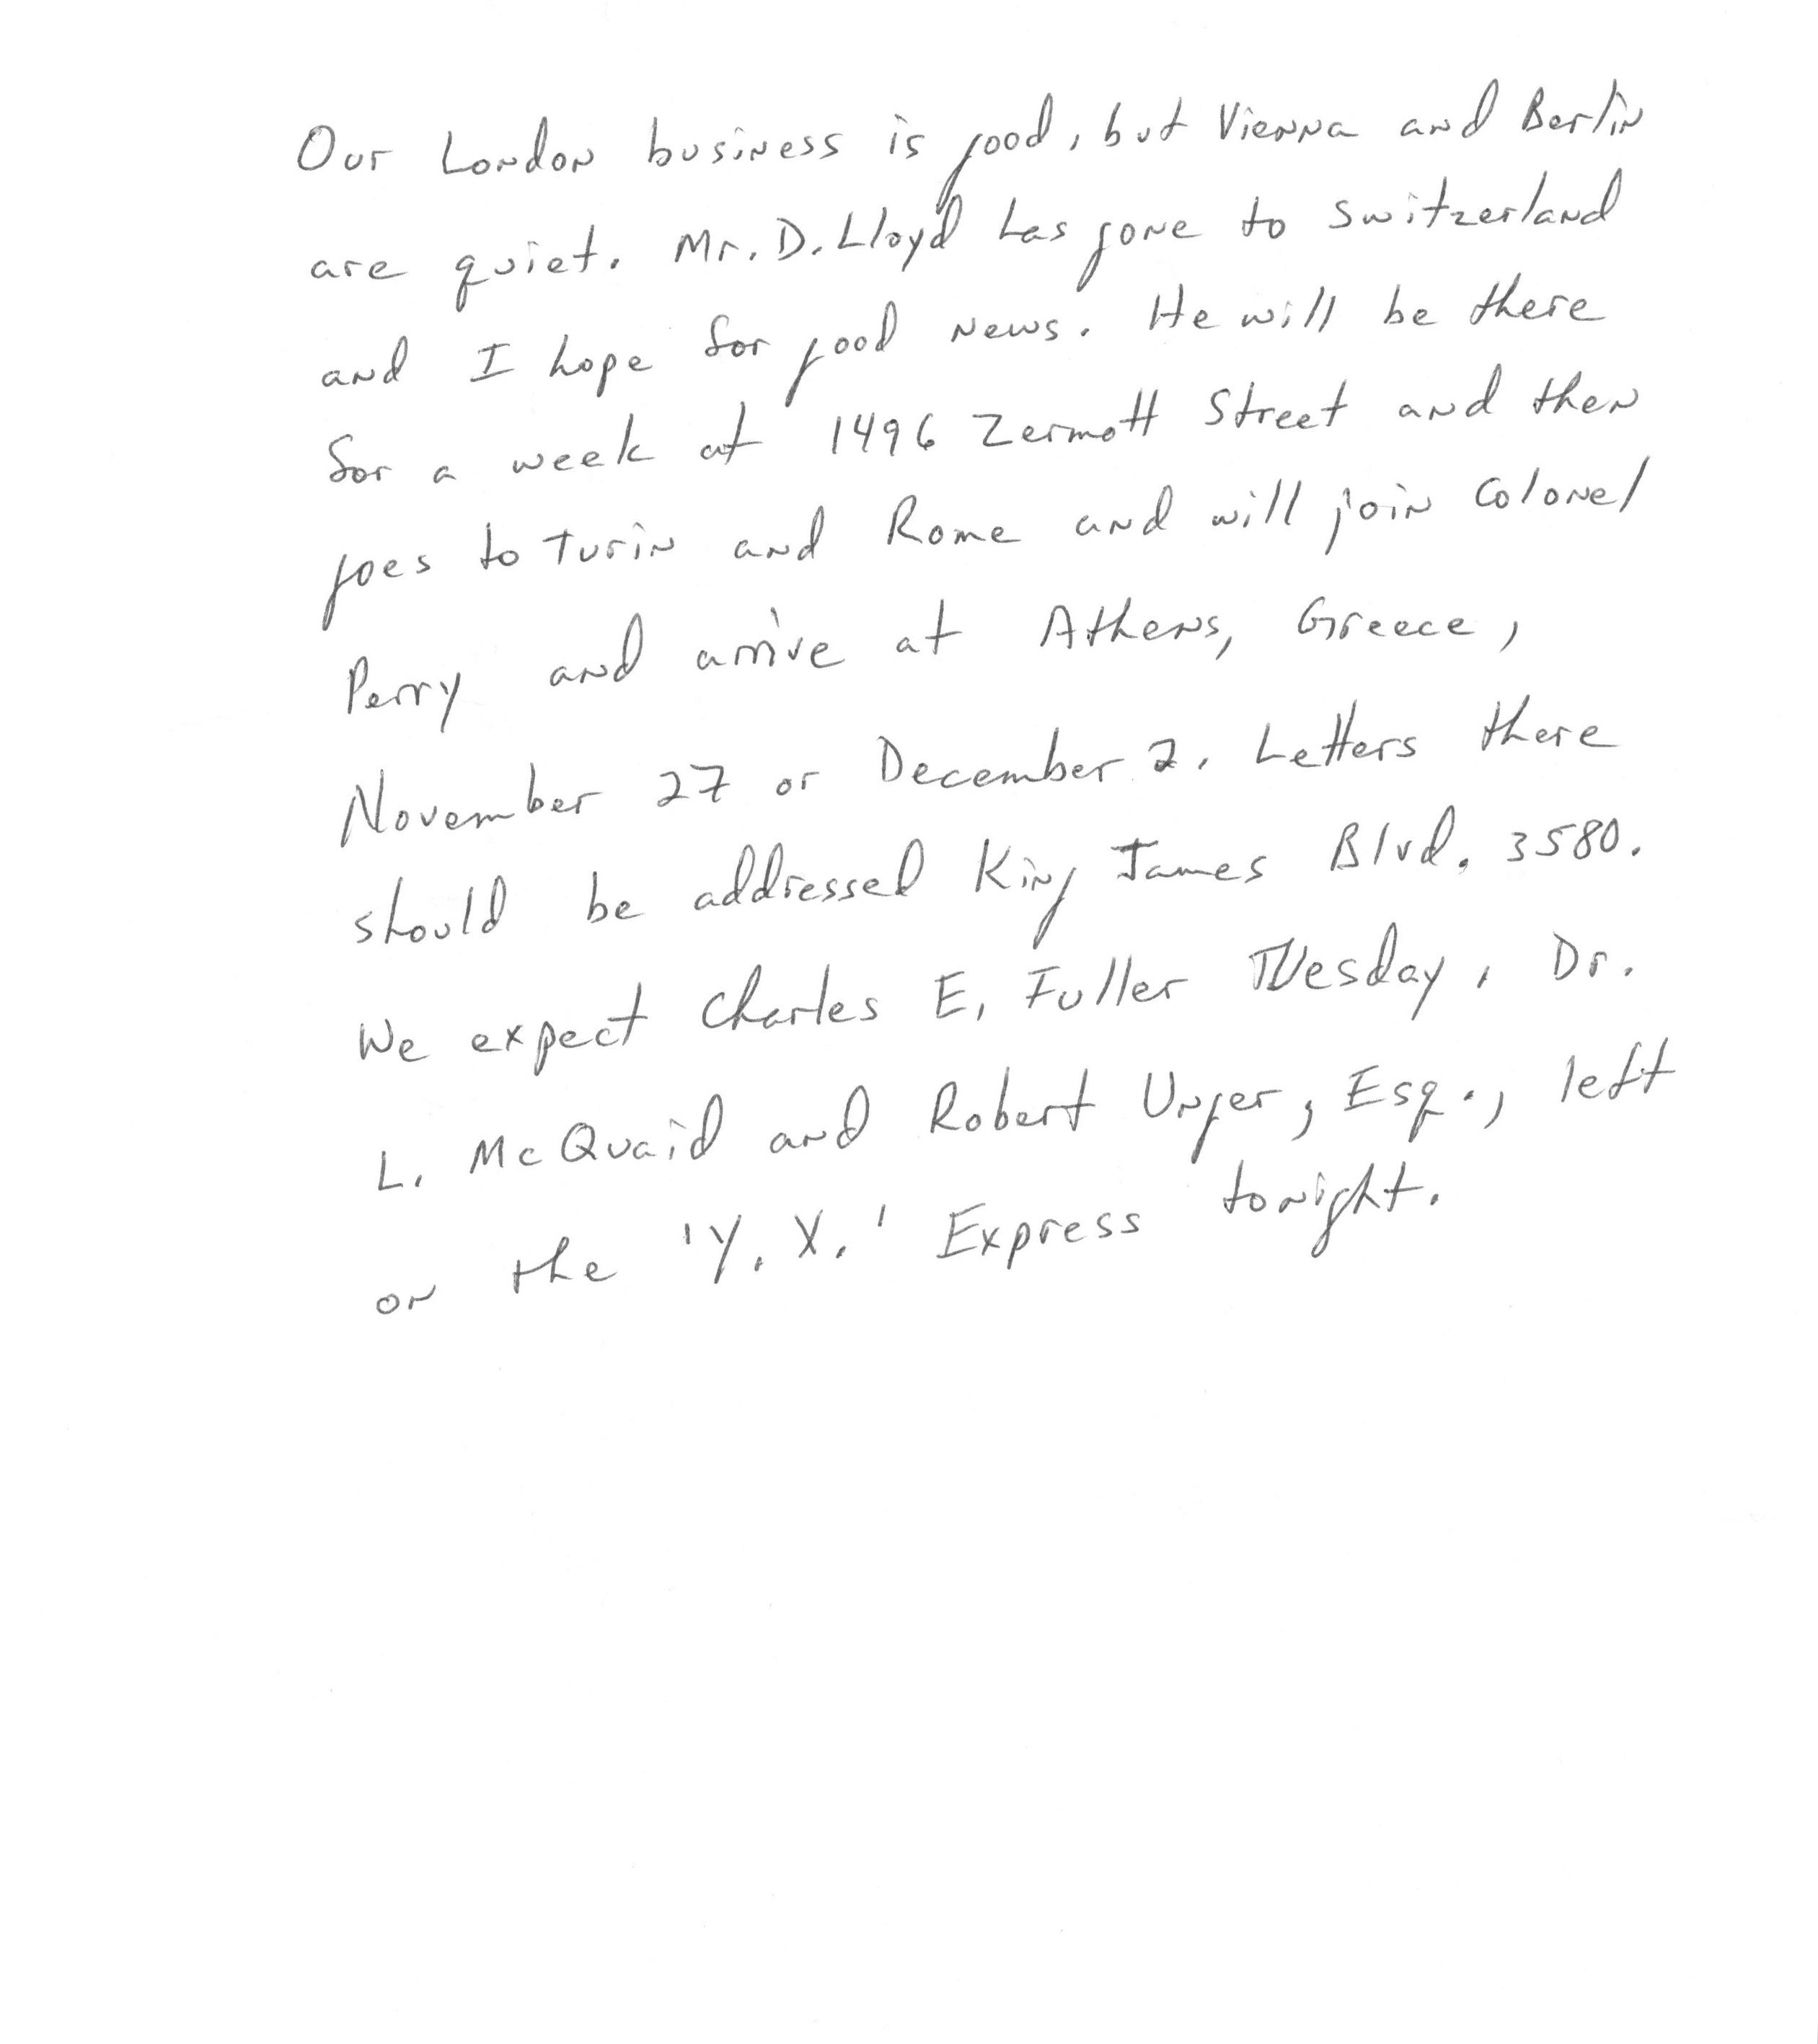 Our London business is good, but Vienna and Berlin
are quiet. Mr. D. Lloyd has gone to Switzerland
and I hope for good news. He will be there
for a week at 1496 Zermott Street and then
goes to Turin and Rome and will join Colonel
Perry and arrive at Athens, Greece,
November 27 or December 2. Letters there
should be addressed King James Blvd. 3580.
We expect Charles E. Fuller Tuesday, Dr.
L. McQuaid and Robert Unger, Esq., left
on the 'Y. X.' Express tonight.